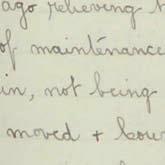 ago relieving
of maintenance
in, not being
moved +